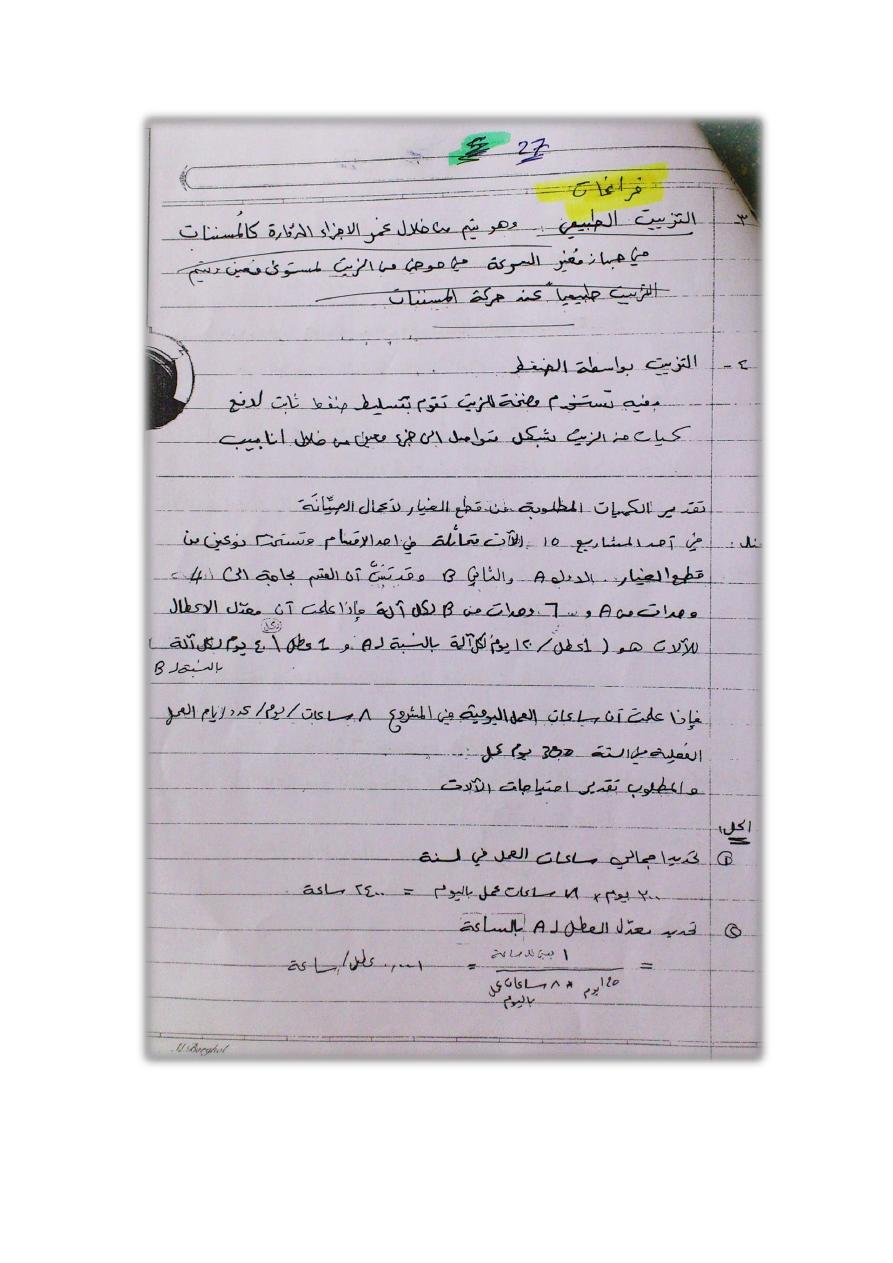 27
فراغات
٣- التزييت الطبيعي : وهو يتم من خلال غمر الاجزاء الدوّارة كالمُسننات
في جهاز مُغير السرعة في حوض من الزيت لمستوى معين ويتم
التزييت طبيعياً عند حركة المسننات
٤- التزييت بواسطة الضغط
وفيه تستخدم مضخة للزيت تقوم بتسليط ضغط ثابت لدفع
كميات من الزيت بشكل متواصل الى جزء معين من خلال انابيب
تقدير الكميات المطلوبة من قطع الغيار لأعمال الصيّانَة
مثال : في أحد المشاريع 15 الآت متماثلة في احد الاقسام وتستخدم نوعين من
قطع الغيار الاول A والثاني B وقد تبيّن أن القسم بحاجة الى 4
وحدات من A و 6 وحدات من B لكل آلة فإذا علمت أن معدّل الاعطال
للآلات هو ( 1 عطل / ١٢٠ يوم لكل آلة بالنسبة لـ A و 1 عطل / لكل ٤٠ يوم لكل آلة )
بالنسبة لـ B
فإذا علمت أن ساعات العمل اليومية في المشروع ٨ ساعات / يوم / عدد ايام العمل
الفعلية في السنة 300 يوم عمل
والمطلوب تقدير احتياجات الآلات
الحل:
① تحديد اجمالي ساعات العمل في السنة
٣٠٠ يوم * ٨ ساعات عمل باليوم = ٢٤٠٠ ساعة
② تحديد معدّل العطل لـ A بالساعة
= ١ / ١٢٠ يوم * ٨ ساعات عمل باليوم = ٠,٠٠١ عطل / ساعة
M.Barghol